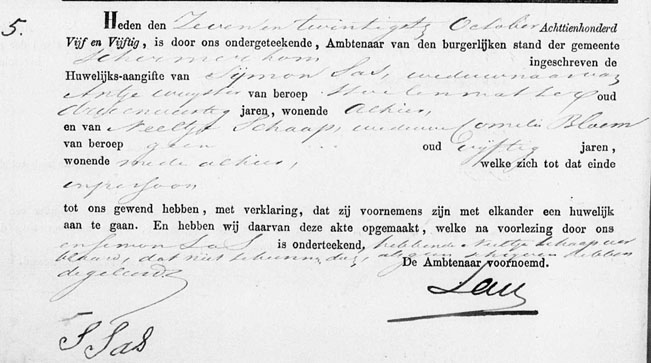 5.
Heden den Zeven en twintigste October Achttienhonderd
Vijf en Vijftig, is door ons ondergeteekende, Ambtenaar van den burgerlijken stand der gemeente
Schermerhorn ingeschreven de
Huwelijks-aangifte van Sijmon Sas, weduwnaar van
Antje van beroep oud
drieenveertig jaren, wonende alhier,
en van Neeltje Schaap, weduwe Cornelis Bloem
van beroep geen oud vijftig jaren,
wonende mede alhier, welke zich tot dat einde
in persoon
tot ons gewend hebben, met verklaring, dat zij voornemens zijn met elkander een huwelijk
aan te gaan. En hebben wij daarvan deze akte opgemaakt, welke na voorlezing door ons
en Simon Sas is onderteekend, hebbende Neeltje Schaap ver
klaard, dat niet te kunnen doen, als geen schrijven hebben
de geleerd.
De Ambtenaar voornoemd.
S Sas